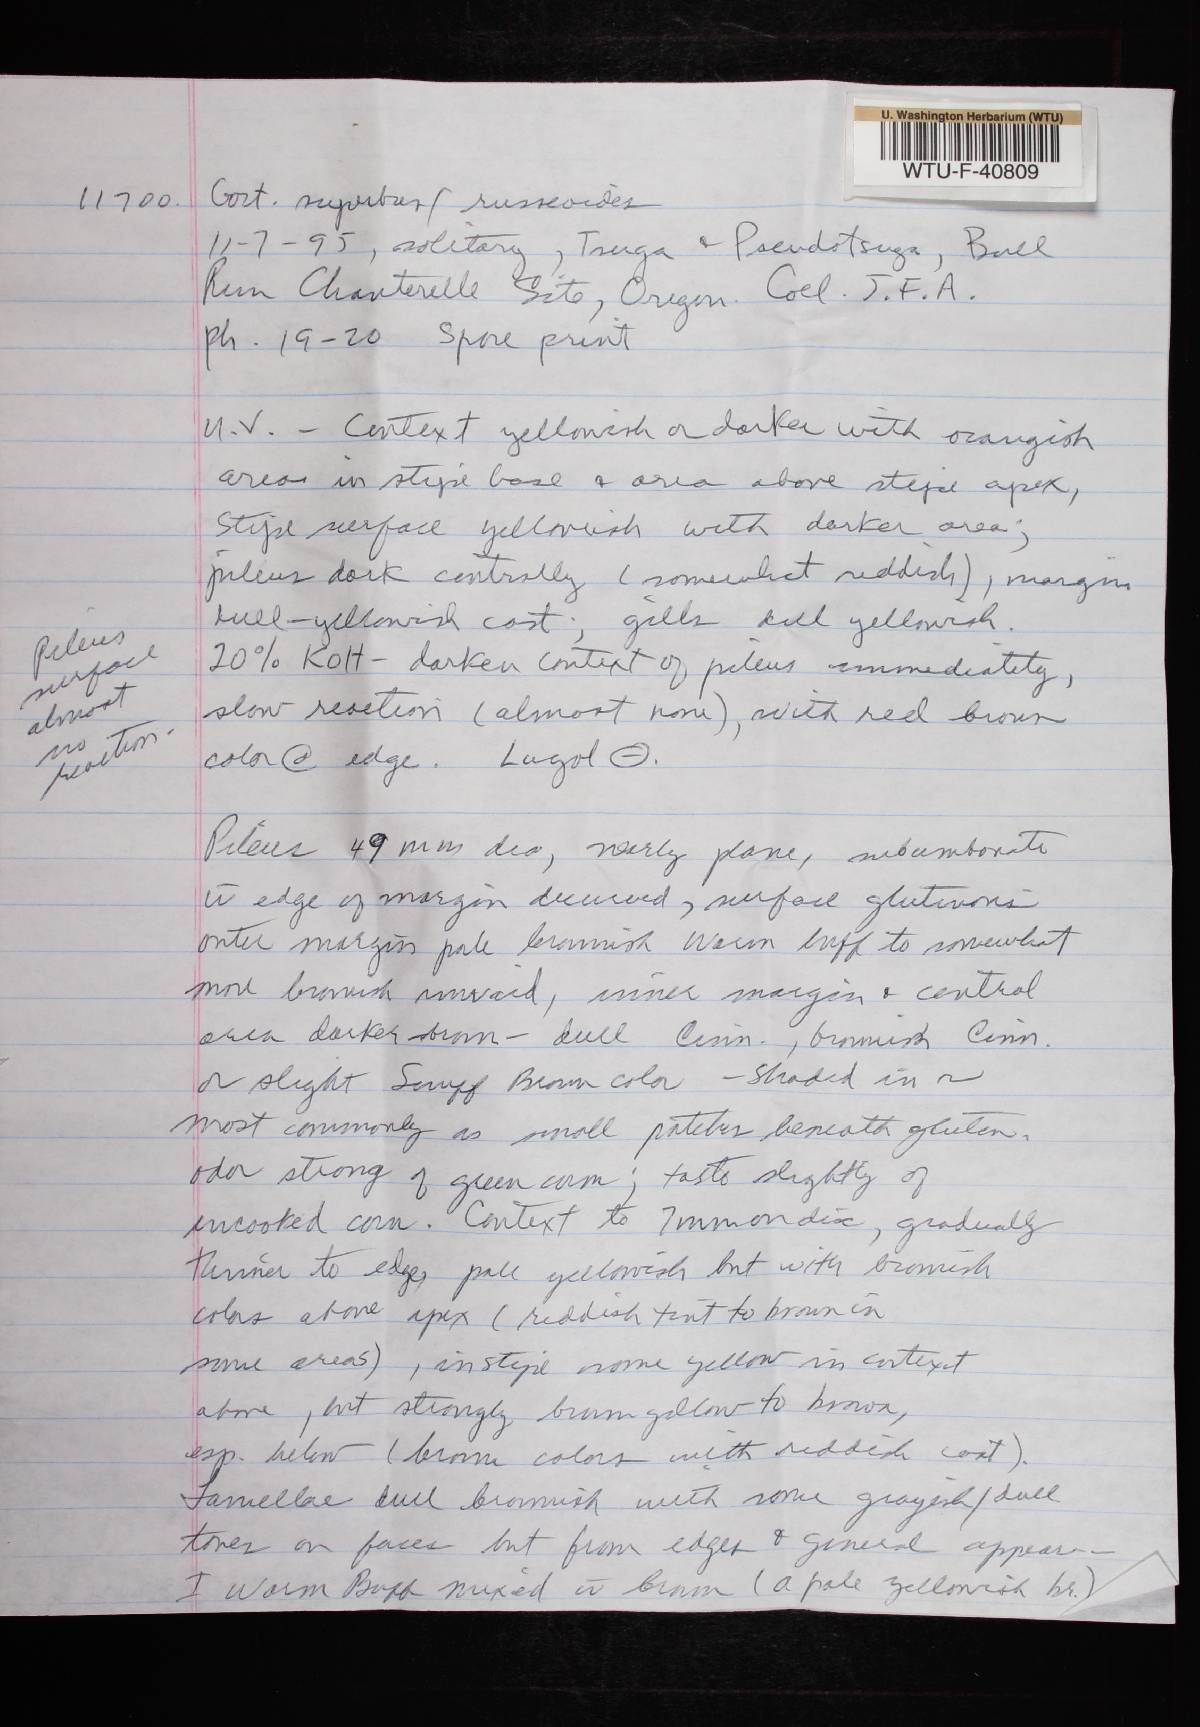 U. Washington Herbarium (WTU)
WTU-F-40809
11700. Cort. superbus / russeoides
11-7-95, solitary, Tsuga & Pseudotsuga, Bull
Run Chanterelle Site, Oregon. Coll. J.F.A.
ph. 19-20 Spore print
U.V. - Context yellowish or darker with orangish
areas in stipe base & area above stipe apex,
Stipe surface yellowish with darker area;
pileus dark centrally (somewhat reddish), margin
dull-yellowish cast; gills dull yellowish.
20% KOH - darken context of pileus immediately,
slow reaction (almost none), with red brown
color @ edge. Lugol ⊖.
Pileus
surface
almost
no
reaction.
Pileus 49 mm dia, nearly plane, subumbonate
w̄ edge of margin decurved, surface glutinous
outer margin pale brownish Warm buff to somewhat
more brownish, inner margin & central
area darker brown - dull Cinn., brownish Cinn.
or slight Snuff Brown color - shaded in or
most commonly as small patches beneath gluten.
odor strong of green corn; taste slightly of
uncooked corn. Context to 7mm on disc, gradually
thinner to edge, pale yellowish but with brownish
colors above apex (reddish tint to brown in
some areas), in stipe some yellow in context
above, but strongly brown yellow to brown,
esp. below (brown colors with reddish cast).
Lamellae dull brownish with some grayish/dull
tones on faces but from edges & general appear-
I Warm Buff mixed w̄ brown (a pale yellowish br.)